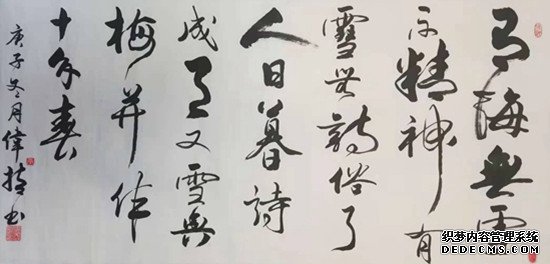 有梅無雪
不精神有
雪無詩俗了
人日暮詩
成天又雪與
梅并作
十分春
庚子冬月偉书
织梦内容管理系统
DEDECMS.COM